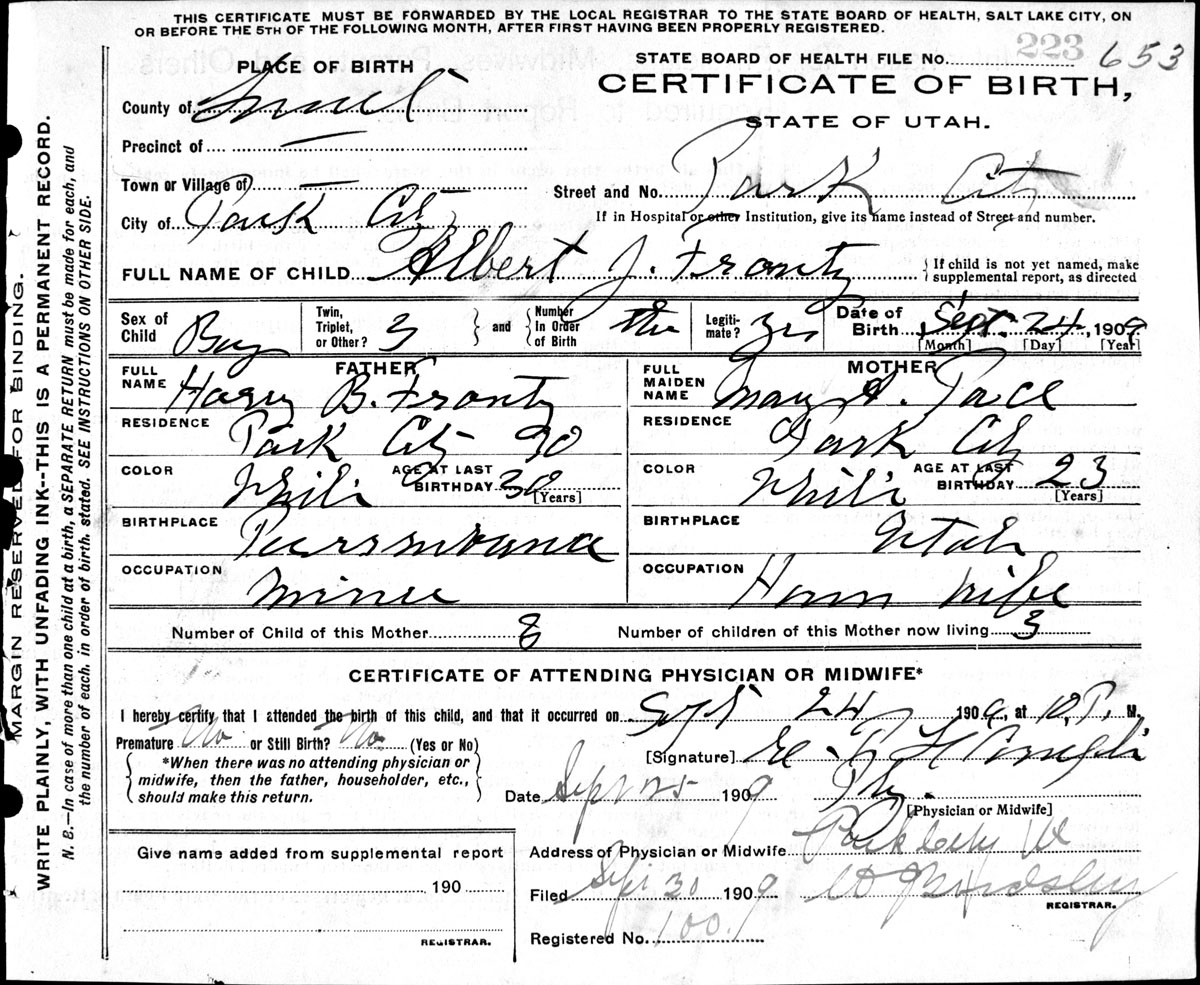 THIS CERTIFICATE MUST BE FORWARDED BY THE LOCAL REGISTRAR TO THE STATE BOARD OF HEALTH, SALT LAKE CITY, ON
OR BEFORE THE 5TH OF THE FOLLOWING MONTH, AFTER FIRST HAVING BEEN PROPERLY REGISTERED.
STATE BOARD OF HEALTH FILE No. 223 653
CERTIFICATE OF BIRTH,
STATE OF UTAH.
PLACE OF BIRTH
County of
Precinct of —
Town or Village of —
Street and No. Park City
City of Park City
If in Hospital or other Institution, give its name instead of Street and number.
FULL NAME OF CHILD Albert J. Frontz { If child is not yet named, make supplemental report, as directed
Sex of Child Boy
Twin, Triplet, or Other? 3 } and { Number In Order of Birth
Legitimate?
Date of Birth Sept. 24, 1909
[Month] [Day] [Year]
FATHER
FULL NAME Harry B. Frontz
RESIDENCE Park City
COLOR White AGE AT LAST BIRTHDAY 30 [Years]
BIRTHPLACE
OCCUPATION Miner
MOTHER
FULL MAIDEN NAME Mary A. Pace
RESIDENCE Park City
COLOR White AGE AT LAST BIRTHDAY 23 [Years]
BIRTHPLACE Utah
OCCUPATION House wife
Number of Child of this Mother
Number of children of this Mother now living 3
CERTIFICATE OF ATTENDING PHYSICIAN OR MIDWIFE*
I hereby certify that I attended the birth of this child, and that it occurred on Sept 24 1909, at 10, P. M.
Premature No or Still Birth? No (Yes or No)
[Signature]
{ *When there was no attending physician or midwife, then the father, householder, etc., should make this return. }
Date Sept 25 1909 Phy.
[Physician or Midwife]
Give name added from supplemental report
190
REGISTRAR.
Address of Physician or Midwife Park City Ut
Filed Sept 30 1909
REGISTRAR.
Registered No. 100.
MARGIN RESERVED FOR BINDING.
WRITE PLAINLY, WITH UNFADING INK--THIS IS A PERMANENT RECORD.
N. B.—In case of more than one child at a birth, a SEPARATE RETURN must be made for each, and
the number of each, in order of birth, stated. SEE INSTRUCTIONS ON OTHER SIDE.